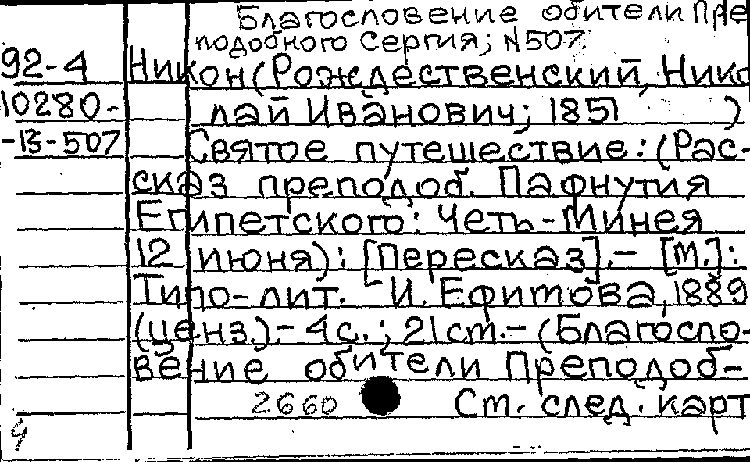 Благословение обители Пре
подобного Сергия; N507
92-4 Никон (Рождественский, Нико
10280- лай Иванович; 1851 )
-В-507 Святое путешествие: (Рас-
сказ преподоб. Пафнутия
Египетского: Четь-Минея
12 июня): [Пересказ].- [М.]:
Типо-лит. И. Ефимова, 1889
(ценз.).- 4с.; 21см.- (Благосло-
вение обители Преподоб-
2660 См. след. карт